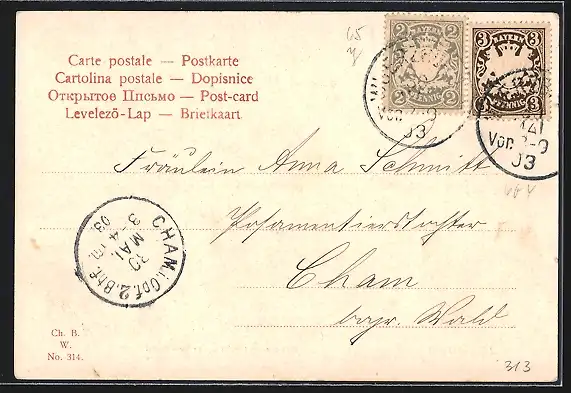 65
2 2
PFENNIG
2 2
BAYERN
3 3
PFENNIG
3 3
Carte postale — Postkarte
Cartolina postale — Dopisnice
Открытое Письмо — Post-card
Levelezö-Lap — Briefkaart
MAI
Vor.
03
Vor. 8-9
03
Fräulein Anna Schmitt
Posamentierstochter
Cham
bayr. Wald
CHAM i. Opf. 2. Bhf.
30
MAI
3-4
03
Ch. B.
W.
No. 314.
313